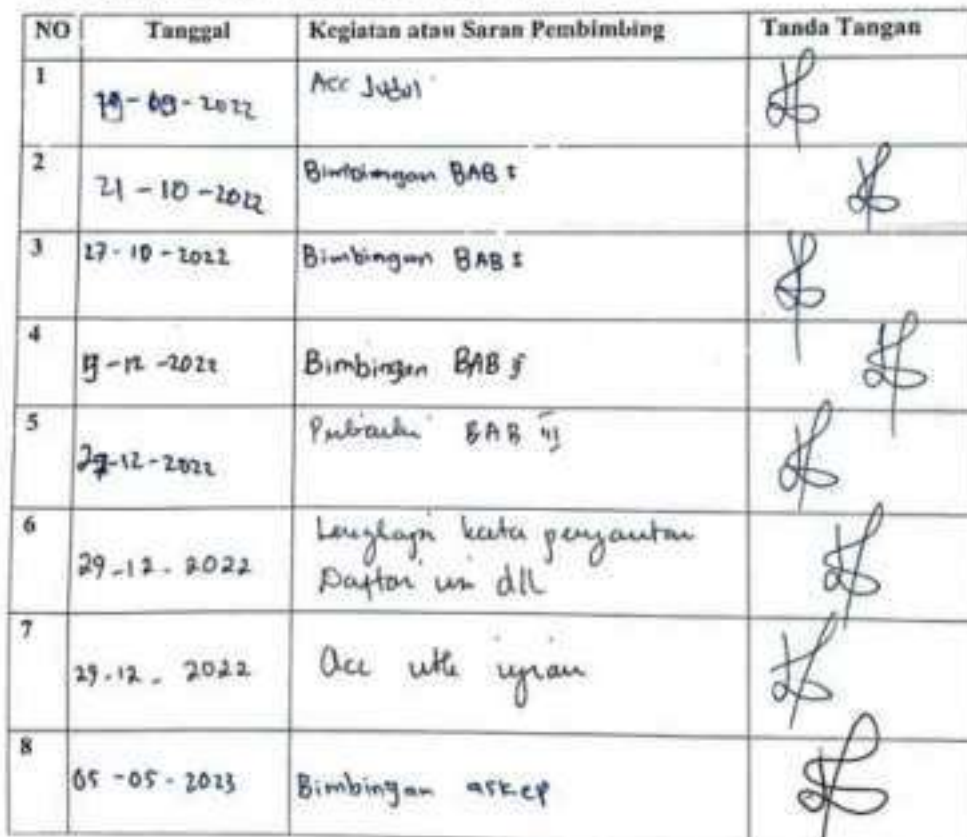 NO Tanggal Kegiatan atau Saran Pembimbing Tanda Tangan
1 19-09-2022 Acc Judul
2 21-10-2022 Bimbingan BAB I
3 27-10-2022 Bimbingan BAB I
4 -12-2022 Bimbingan BAB
5 -12-2022 BAB III
6 29-12-2022 Lengkapi kata pengantar
Daftar isi dll
7 29-12-2022 Acc utk ujian
8 05-05-2023 Bimbingan askep